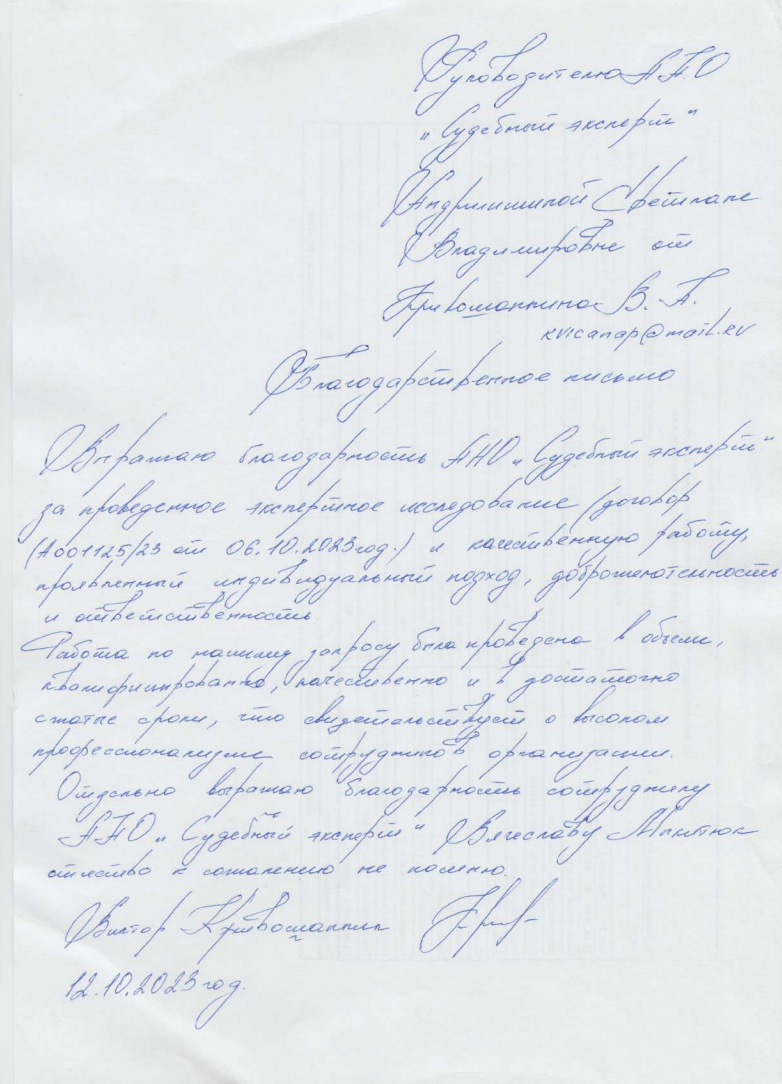 Руководителю АНО
„Судебный эксперт"
Андрлишиной Светлане
Владимировне от
Кривошапкина В. А.
kvicanap@mail.ru
Благодарственное письмо
Выражаю благодарность АНО „Судебный эксперт"
за проведенное экспертное исследование (договор
(А001125/23 от 06.10.2023год.) и качественную работу,
проявленный индивидуальный подход, доброжелательность
и ответственность.
Работа по нашему запросу была проведена в объеме,
квалифицированно, качественно и в достаточно
сжатые сроки, что свидетельствует о высоком
профессионализме сотрудников организации.
Отдельно выражаю благодарность сотруднику
АНО „Судебный эксперт" Вячеславу
отчество к сожалению не помню.
Виктор Кривошапкин
12.10.2023 год.